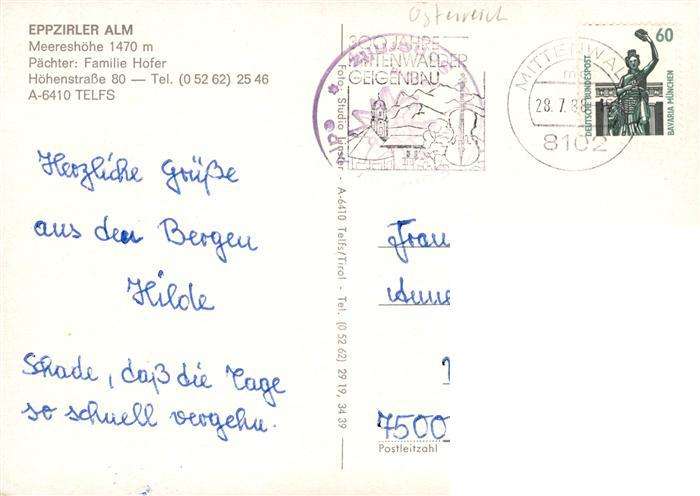 EPPZIRLER ALM
Meereshöhe 1470 m
Pächter: Familie Hofer
Höhenstraße 80 — Tel. (0 52 62) 25 46
A-6410 TELFS
Herzliche Grüße
aus den Bergen
Hilde
Schade, daß die Tage
so schnell vergehn.
Foto Studio - A-6410 Telfs/Tirol - Tel. (0 52 62) 29 19, 34 39
Österreich
300 JAHRE
MITTENWALDER
GEIGENBAU
MITTENWA
28.7.88
8102
60
DEUTSCHE BUNDESPOST
BAVARIA MÜNCHEN
Frau
7500
Postleitzahl